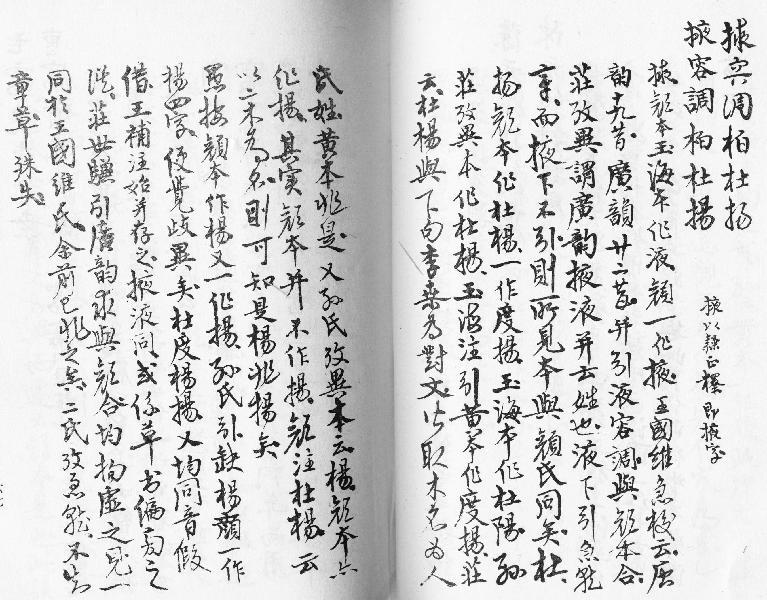 掖容調柏杜揚
掖容調柏杜揚
掖以隸正釋即掖字
掖顏本玉海本作液顏一作掖王國維急校云唐
韻九昔廣韻廿二昔并引液容調與顏本合
莊攷異謂廣韻掖液并云姓也液下引急就
章而掖下不引則所見本與顏氏同矣杜
揚顏本作杜楊一作度揚玉海本作杜陽孫
莊攷異本作杜楊玉海注引黃本作度揚莊
云杜楊與下句李桑為對文皆取木名為人
氏姓黃本非是又孫氏攷異本云楊顏本亦
作揚其實顏本并不作揚顏注杜楊云
以二木為名則可知是楊非揚矣
愚按顏本作楊又一作揚孫氏引缺楊顏一作
楊四字便覺歧異矣杜度楊揚又均同音假
借王補注始并存之掖液同或係草書偏旁之
混莊世驥引廣韻求與顏合均拘虛之見一
同於王國維氏金前已非之矣二氏攷急就不知
章草殊失